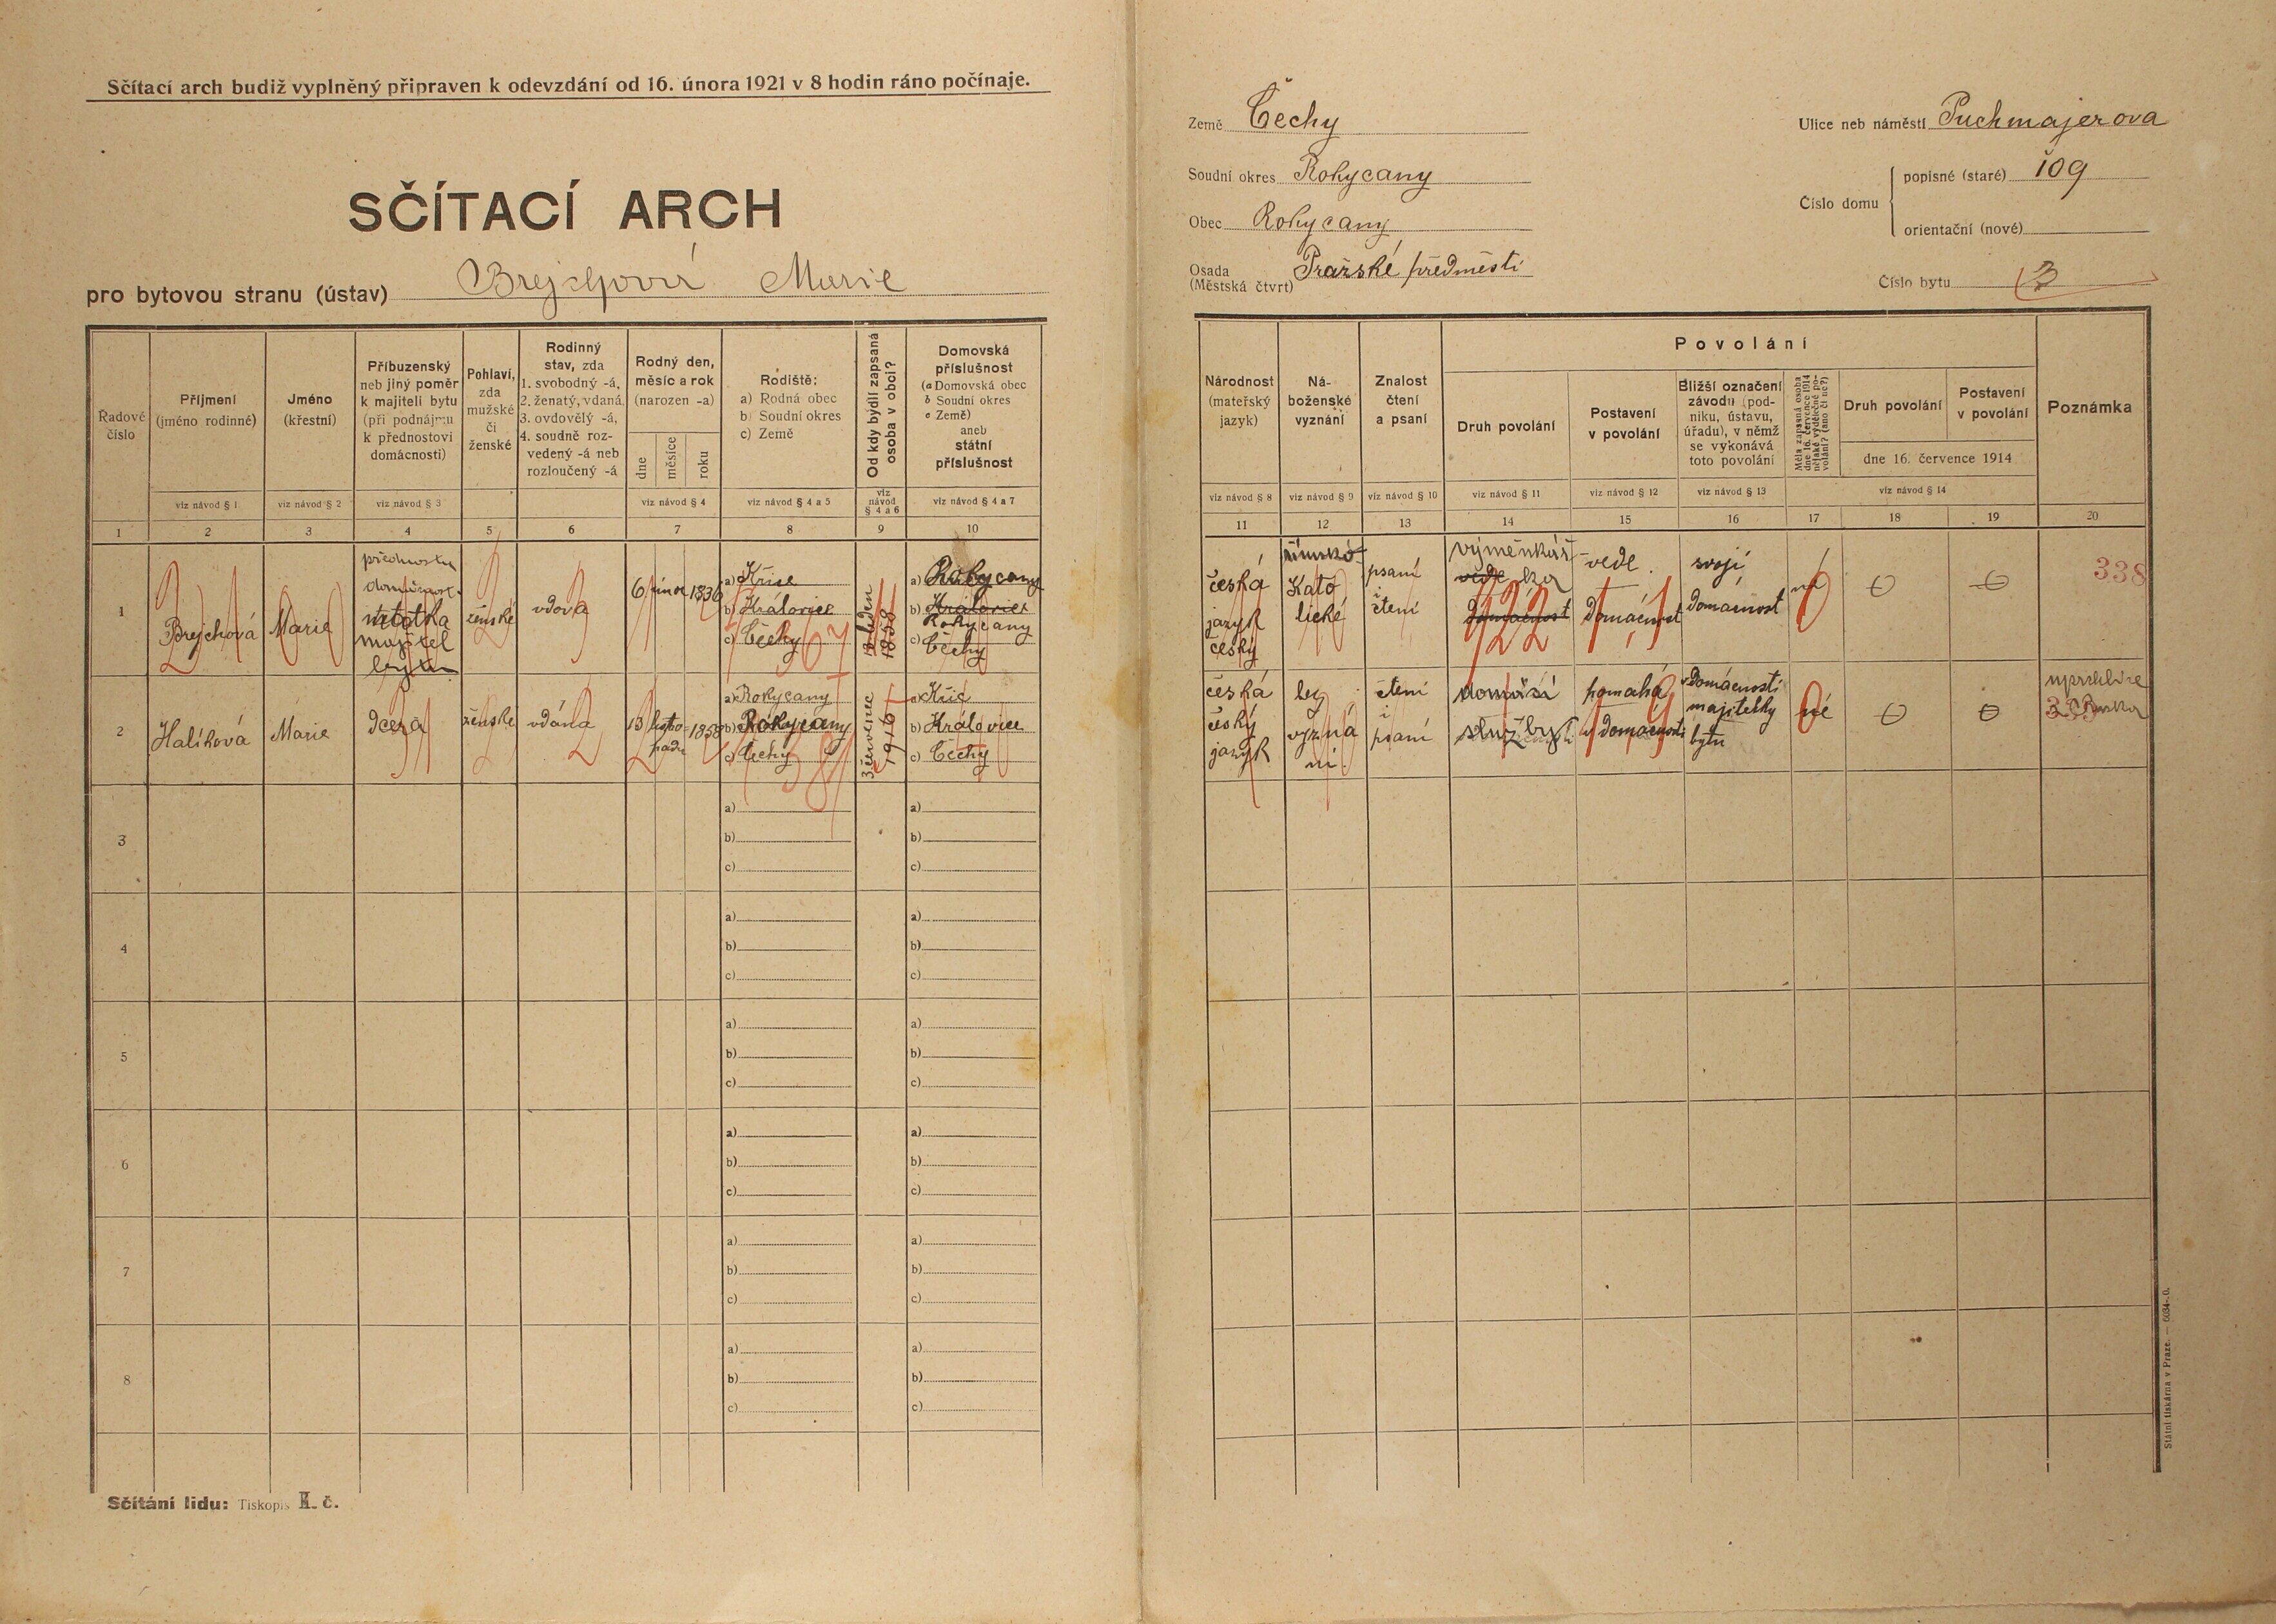 Sčítací arch budiž vyplněný připraven k odevzdání od 16. února 1921 v 8 hodin ráno počínaje.
SČÍTACÍ ARCH
pro bytovou stranu (ústav) Brejchová Marie
Země Čechy
Soudní okres Rokycany
Obec Rokycany
Osada (Městská čtvrt) Pražské předměstí
Ulice neb náměstí Puchmajerova
Číslo domu
popisné (staré) 109
orientační (nové)
Číslo bytu 3
Řadové číslo
Příjmení (jméno rodinné)
Jméno (křestní)
Příbuzenský neb jiný poměr k majiteli bytu (při podnájmu k přednostovi domácnosti)
Pohlaví, zda mužské či ženské
Rodinný stav, zda 1. svobodný -á, 2. ženatý, vdaná, 3. ovdovělý -á, 4. soudně rozvedený -á neb rozloučený -á
Rodný den, měsíc a rok (narozen -a)
dne
měsíce
roku
Rodiště: a) Rodná obec b) Soudní okres c) Země
Od kdy bydlí zapsaná osoba v obci?
Domovská příslušnost (a Domovská obec b Soudní okres c Země) aneb státní příslušnost
viz návod § 1
viz návod § 2
viz návod § 3
viz návod § 4
viz návod § 4 a 5
viz návod § 4 a 6
viz návod § 4 a 7
1 2 3 4 5 6 7 8 9 10
Národnost (mateřský jazyk)
Náboženské vyznání
Znalost čtení a psaní
Povolání
Druh povolání
Postavení v povolání
Bližší označení závodu (podniku, ústavu, úřadu), v němž se vykonává toto povolání
Měla zapsaná osoba dne 16. července 1914 nějaké výdělečné povolání? (ano či ne?)
Druh povolání
Postavení v povolání
dne 16. července 1914
Poznámka
viz návod § 8
viz návod § 9
viz návod § 10
viz návod § 11
viz návod § 12
viz návod § 13
viz návod § 14
11 12 13 14 15 16 17 18 19 20
1
Brejchová
Marie
ženské
vdova
6
února
1836
a)
b) Královice
c) Čechy
1858
a) Rokycany
b) Královice
Rokycany
c) Čechy
česká
jazyk
český
římsko
Kato
lické
psaní
i
čtení
domácnost
vede
domácnost
svojí
domácnost
né
0
0
338
2
Halíková
Marie
dcera
ženské
vdána
13
listo-
padu
1858
a) Rokycany
b) Rokycany
c) Čechy
červenec
1916
a) Kříc
b) Královice
c) Čechy
česká
český
jazyk
bez
vyzná
ní.
čtení
i
psaní
domácí
služby
pomahá
v domácnosti
v domácnosti
majitelky
bytu
né
0
0
3
a)
b)
c)
a)
b)
c)
4
a)
b)
c)
a)
b)
c)
5
a)
b)
c)
a)
b)
c)
6
a)
b)
c)
a)
b)
c)
7
a)
b)
c)
a)
b)
c)
8
a)
b)
c)
a)
b)
c)
Sčítání lidu: Tiskopis II. č.
Státní tiskárna v Praze. — 6034-.0.